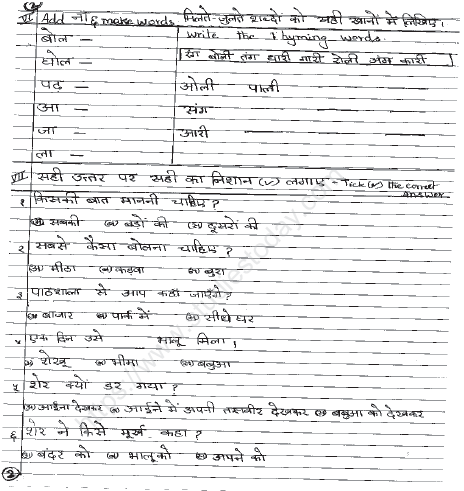 (2)
VI Add ना & make words
बोल —
घोल —
पढ़ —
आ —
जा —
ला —
मिलते-जुलते शब्दों को सही खानों में लिखिए।
Write the Rhyming words.
रंग बोली तंग बारी गारी रोली जंग कारी
ओली पाली
संग
आरी
VII सही उत्तर पर सही का निशान (✓) लगाए - Tick (✓) the correct answer
१ किसकी बात माननी चाहिए?
(अ) सबकी (ब) बड़ों की (स) दूसरों की
२ सबसे कैसा बोलना चाहिए?
(अ) मीठा (ब) कड़वा (स) बुरा
३ पाठशाला से आप कहाँ जाएँगे?
(अ) बाजार (ब) पार्क में (स) सीधे घर
४ एक दिन उसे ____ भालू मिला।
(अ) शेखू (ब) भीमा (स) बबुआ
५ शेर क्यों डर गया?
(अ) आईना देखकर (ब) आईने में अपनी तस्वीर देखकर (स) बबुआ को देखकर
६ शेर ने किसे मूर्ख कहा?
(अ) बंदर को (ब) भालू को (स) अपने को
(2)